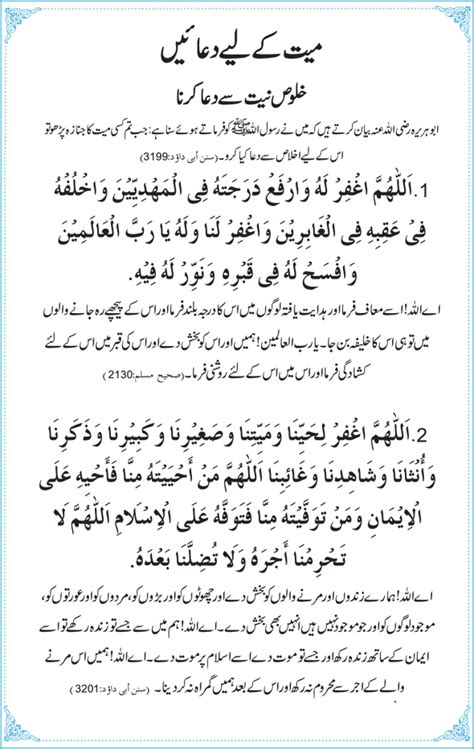 میت کے لیے دعائیں
خلوص نیت سے دعا کرنا
ابوہریرہ رضی اللہ عنہ بیان کرتے ہیں کہ میں نے رسول اللہ ﷺ کو فرماتے ہوئے سنا ہے: جب تم کسی میت کا جنازہ پڑھو تو
اس کے لیے اخلاص سے دعا کیا کرو۔ (سنن أبی داؤد:3199)
1. اَللّٰهُمَّ اغْفِرْ لَهُ وَارْفَعْ دَرَجَتَهُ فِى الْمَهْدِيِّيْنَ وَاخْلُفْهُ
فِىْ عَقِبِهِ فِى الْغَابِرِيْنَ وَاغْفِرْ لَنَا وَلَهُ يَا رَبَّ الْعَالَمِيْنَ
وَافْسَحْ لَهُ فِىْ قَبْرِهِ وَنَوِّرْ لَهُ فِيْهِ.
اے اللہ! اسے معاف فرما اور ہدایت یافتہ لوگوں میں اس کا درجہ بلند فرما اور اس کے پیچھے رہ جانے والوں
میں تو ہی اس کا خلیفہ بن جا۔ یا رب العالمین! ہمیں اور اس کو بخش دے اور اس کی قبر میں اس کے لئے
کشادگی فرما اور اس میں اس کے لئے روشنی فرما۔ (صحیح مسلم:2130)
2. اَللّٰهُمَّ اغْفِرْ لِحَيِّنَا وَمَيِّتِنَا وَصَغِيْرِنَا وَكَبِيْرِنَا وَذَكَرِنَا
وَأُنْثَانَا وَشَاهِدِنَا وَغَائِبِنَا اَللّٰهُمَّ مَنْ أَحْيَيْتَهُ مِنَّا فَأَحْيِهِ عَلَى
الْاِيْمَانِ وَمَنْ تَوَفَّيْتَهُ مِنَّا فَتَوَفَّهُ عَلَى الْاِسْلَامِ اَللّٰهُمَّ لَا
تَحْرِمْنَا أَجْرَهُ وَلَا تُضِلَّنَا بَعْدَهُ.
اے اللہ! ہمارے زندوں اور مرنے والوں کو بخش دے اور چھوٹوں کو اور بڑوں کو، مردوں کو اور عورتوں کو،
موجود لوگوں کو اور جو موجود نہیں ہیں انہیں بھی بخش دے۔ اے اللہ! ہم میں سے جسے تو زندہ رکھے تو اسے
ایمان کے ساتھ زندہ رکھ اور جسے تو موت دے اسے اسلام پر موت دے۔ اے اللہ! ہمیں اس مرنے
والے کے اجر سے محروم نہ رکھ اور اس کے بعد ہمیں گمراہ نہ کر دینا۔ (سنن أبی داؤد:3201)